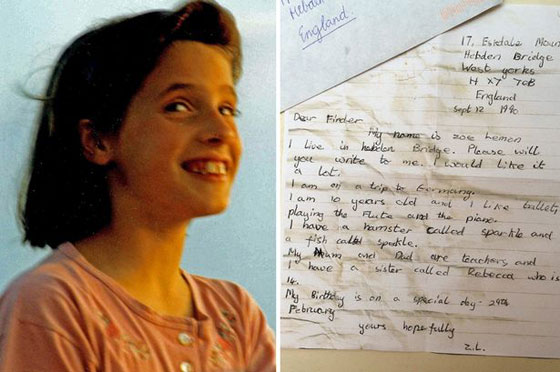 Hebden
England.
17, Eskdale Moun
Hebden Bridge
West yorks
H X7 7
England
Sept 12 1990
Dear Finder
My name is zoe Lemon
I Live in hebden Bridge. Please will
you write to me. I would like it
a lot.
I am on a trip to Germany.
I am 10 years old and I like ballet,
playing the Flute and the piano.
I have a hamster called sparkle and
a fish called speckle.
My Mum and Dad are teachers and
I have a sister called Rebecca who is
14.
My Birthday is on a special day - 29th
February
yours hopefully
Z.L.